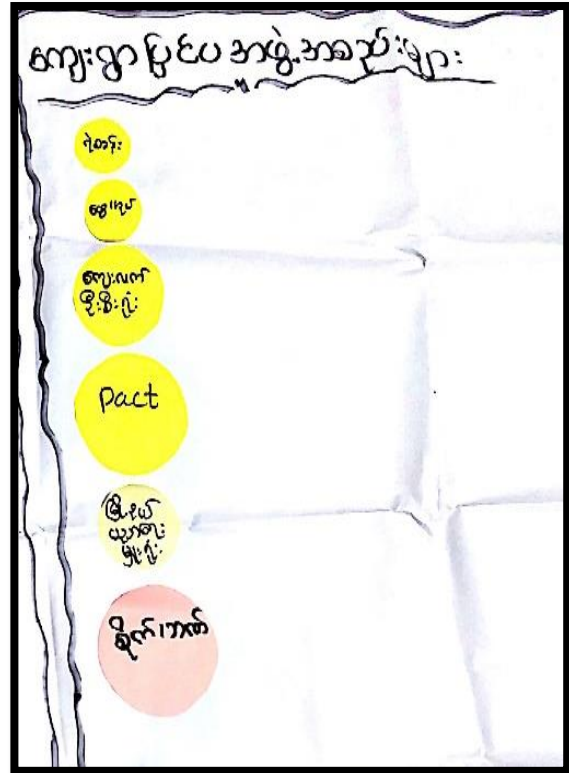 ကျေးရွာ ပြင်ပ အဖွဲ့အစည်းများ
ရဲစခန်း
ကျေးလက်
ဦးစီးရုံး
Pact
မြို့နယ်
ပညာရေး
မှူးရုံး
စိုက်/ဘဏ်